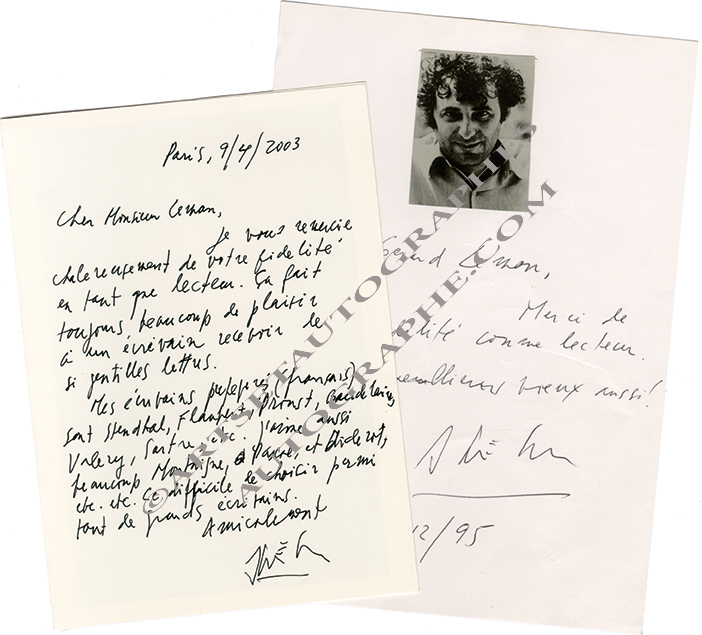 Paris, 9/4/2003
Cher Monsieur Lesson,
Je vous remercie
chaleureusement de votre fidelité
en tant que lecteur. Ça fait
toujours beaucoup de plaisir
à un écrivain recevoir de
si gentilles lettres.
Mes écrivains préférés (français)
sont Stendhal, Flaubert, Proust, Baudelaire,
Valery, Sartre, etc. J'aime aussi
beaucoup Montaigne, et Diderot,
etc. etc. difficile de choisir parmi
tant de grands écrivains.
Amicalement
Gérard Lesson,
Merci de
lité comme lecteur.
meilleurs vœux aussi!
12/95
©ARTSETAUTOGRAPHES
AUTOGRAPHE.COM